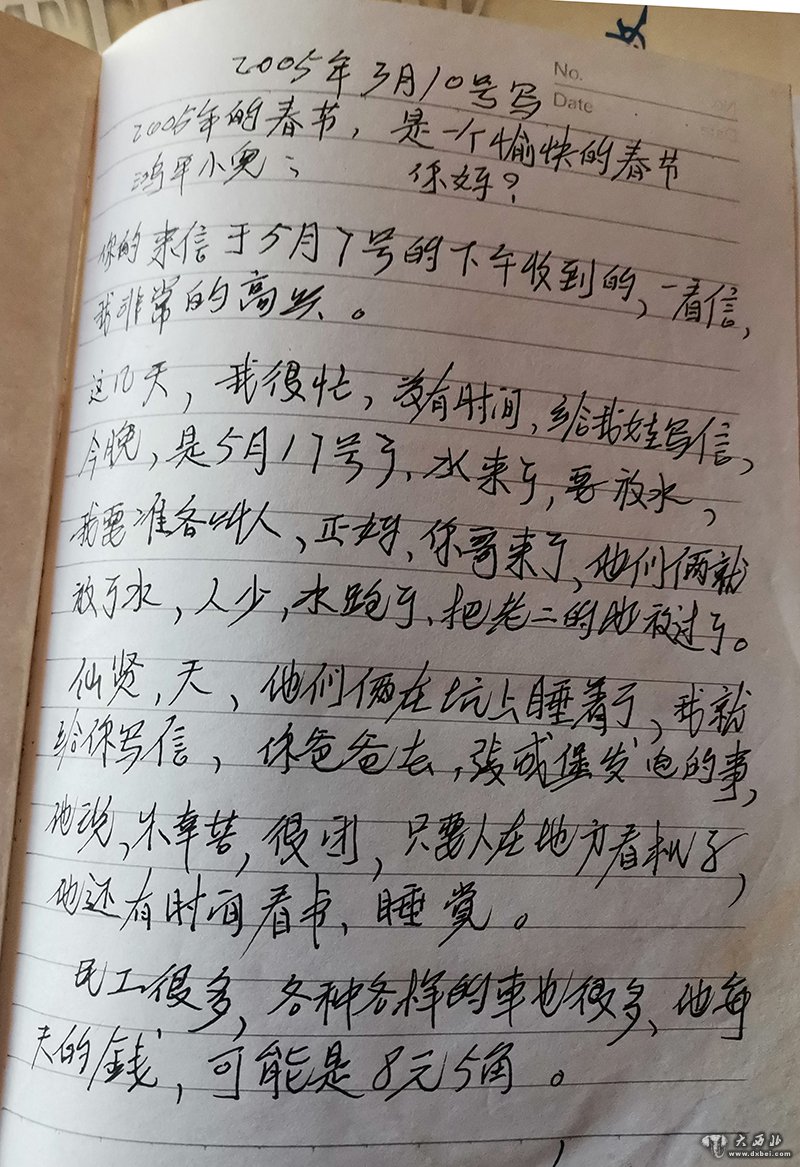 No.
Date
2005年3月10号写
2005年的春节，是一个愉快的春节
鸿平小儿： 你好？
你的来信于5月7号的下午收到的，一看信，
我非常的高兴。
这几天，我很忙，没有时间，给我娃写信，
今晚，是5月17号了，水来了，要放水，
我要准备叫人，正好，你哥来了，他们俩就
放了水，人少，水跑了，把老二的地放过了。
天，他们俩在坑上睡着了，我就
给你写信，你爸爸去，张成堡发电的事，
他说，不辛苦，很，只要人在地方看机子，
他还有时间看书、睡觉。
民工很多，各种各样的车也很多，他每
天的钱，可能是8元5角。
大西北
www.dxbei.com